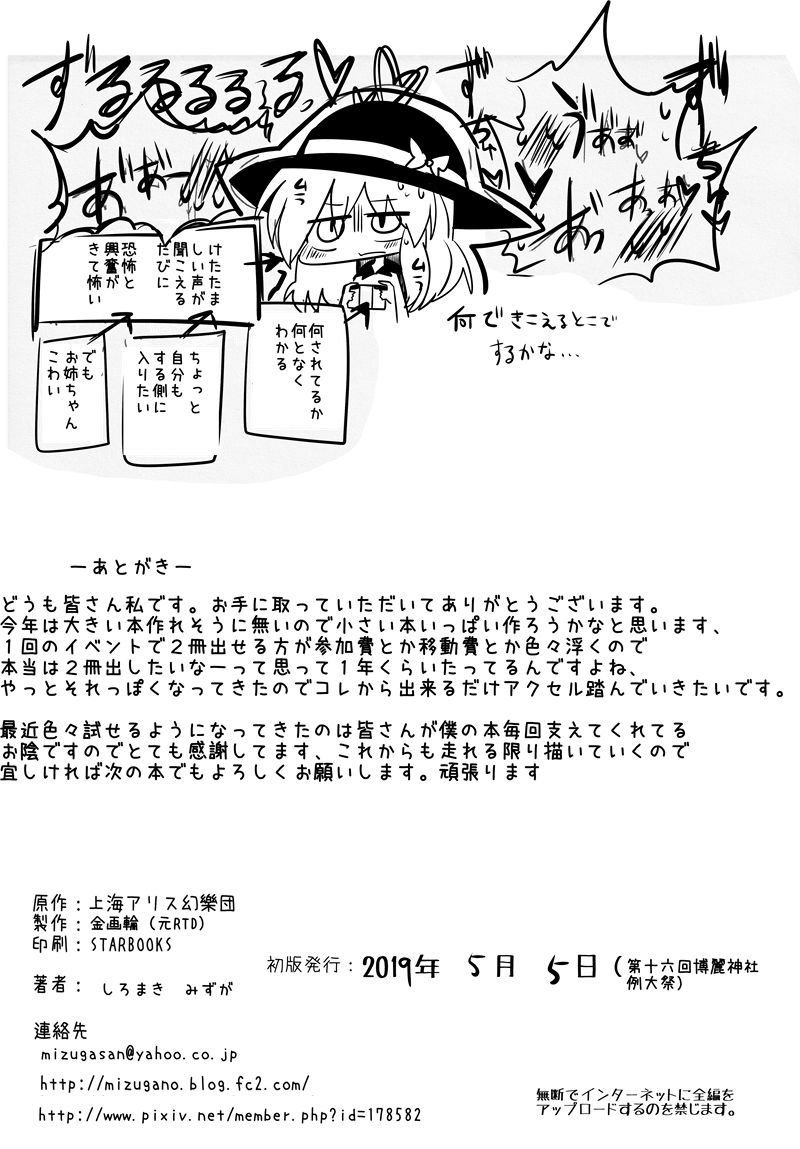 ずるるるるる、♡
ず
ちゅ
ず
ちゅ
うぁぁ
あぁぁ
ムラ
ムラ
けたたま
しい声が
聞こえる
たびに
恐怖と
興奮が
きて怖い
何されてるか
何となく
わかる
ちょっと
自分も
する側に
入りたい
でも
お姉ちゃん
こわい
何できこえるとこで
するかな...
ーあとがきー
どうも皆さん私です。お手に取っていただいてありがとうございます。
今年は大きい本作れそうに無いので小さい本いっぱい作ろうかなと思います、
１回のイベントで２冊出せる方が参加費とか移動費とか色々浮くので
本当は２冊出したいなーって思って１年くらいたってるんですよね、
やっとそれっぽくなってきたのでコレから出来るだけアクセル踏んでいきたいです。
最近色々試せるようになってきたのは皆さんが僕の本毎回支えてくれてる
お陰ですのでとても感謝してます、これからも走れる限り描いていくので
宜しければ次の本でもよろしくお願いします。頑張ります
原作：上海アリス幻樂団
製作：金画輪（元RTD）
印刷：STARBOOKS
初版発行：2019年 5月 5日（第十六回博麗神社
例大祭）
著者： しろまき みずが
連絡先
mizugasan@yahoo.co.jp
http://mizugano.blog.fc2.com/
http://www.pixiv.net/member.php?id=178582
無断でインターネットに全編を
アップロードするのを禁じます。